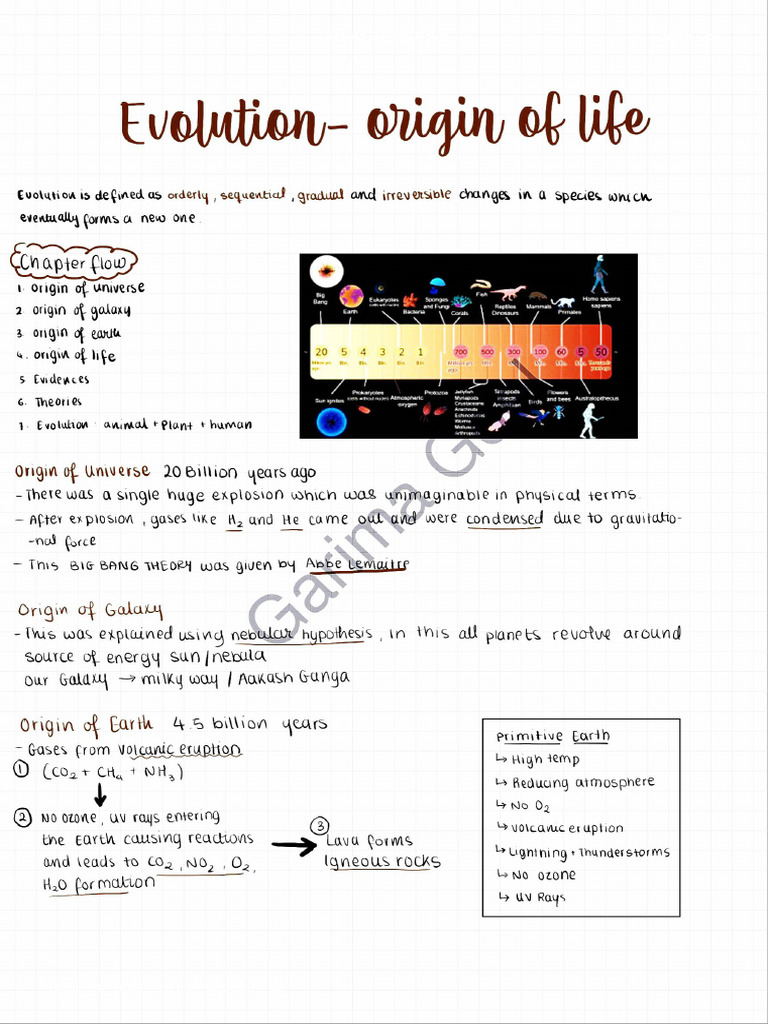 Evolution- origin of life
Evolution is defined as orderly, sequential, gradual and irreversible changes in a species which
eventually forms a new one.
Chapter flow
1. origin of universe
2. origin of galaxy
3. origin of earth
4. origin of life
5. Evidences
6. Theories
7. Evolution: animal + Plant + human
Big Bang
Earth
Eukaryotes
Bacteria
Sponges and Fungi
Corals
Fish
Reptiles Dinosaurs
Mammals
Primates
Homo sapiens sapiens
20 5 4 3 2 1 700 500 300 100 60 5 50
Sun ignites
Prokaryotes
Atmospheric oxygen
Protozoa
Jellyfish
Myriapods
Crustaceans
Arachnids
Echinoderms
Worms
Molluscs
Arthropods
Tetrapods
insects
Amphibian
Birds
Flowers and bees
Australopithecus
Origin of Universe 20 Billion years ago
- There was a single huge explosion which was unimaginable in physical terms.
- After explosion, gases like H₂ and He came out and were condensed due to gravitatio-
-nal force
- This BIG BANG THEORY was given by Abbe Lemaitre
Origin of Galaxy
- This was explained using nebular hypothesis, in this all planets revolve around
source of energy sun/nebula
our Galaxy → milky way / Aakash Ganga
Origin of Earth 4.5 billion years
- Gases from volcanic eruption
① (CO₂ + CH₄ + NH₃)
② No ozone, UV rays entering
the Earth causing reactions
and leads to CO₂, NO₂, O₂,
H₂O formation
③
Lava forms
Igneous rocks
Primitive Earth
↳ High temp
↳ Reducing atmosphere
↳ No O₂
↳ volcanic eruption
↳ Lightning + Thunderstorms
↳ No ozone
↳ UV Rays
Garima